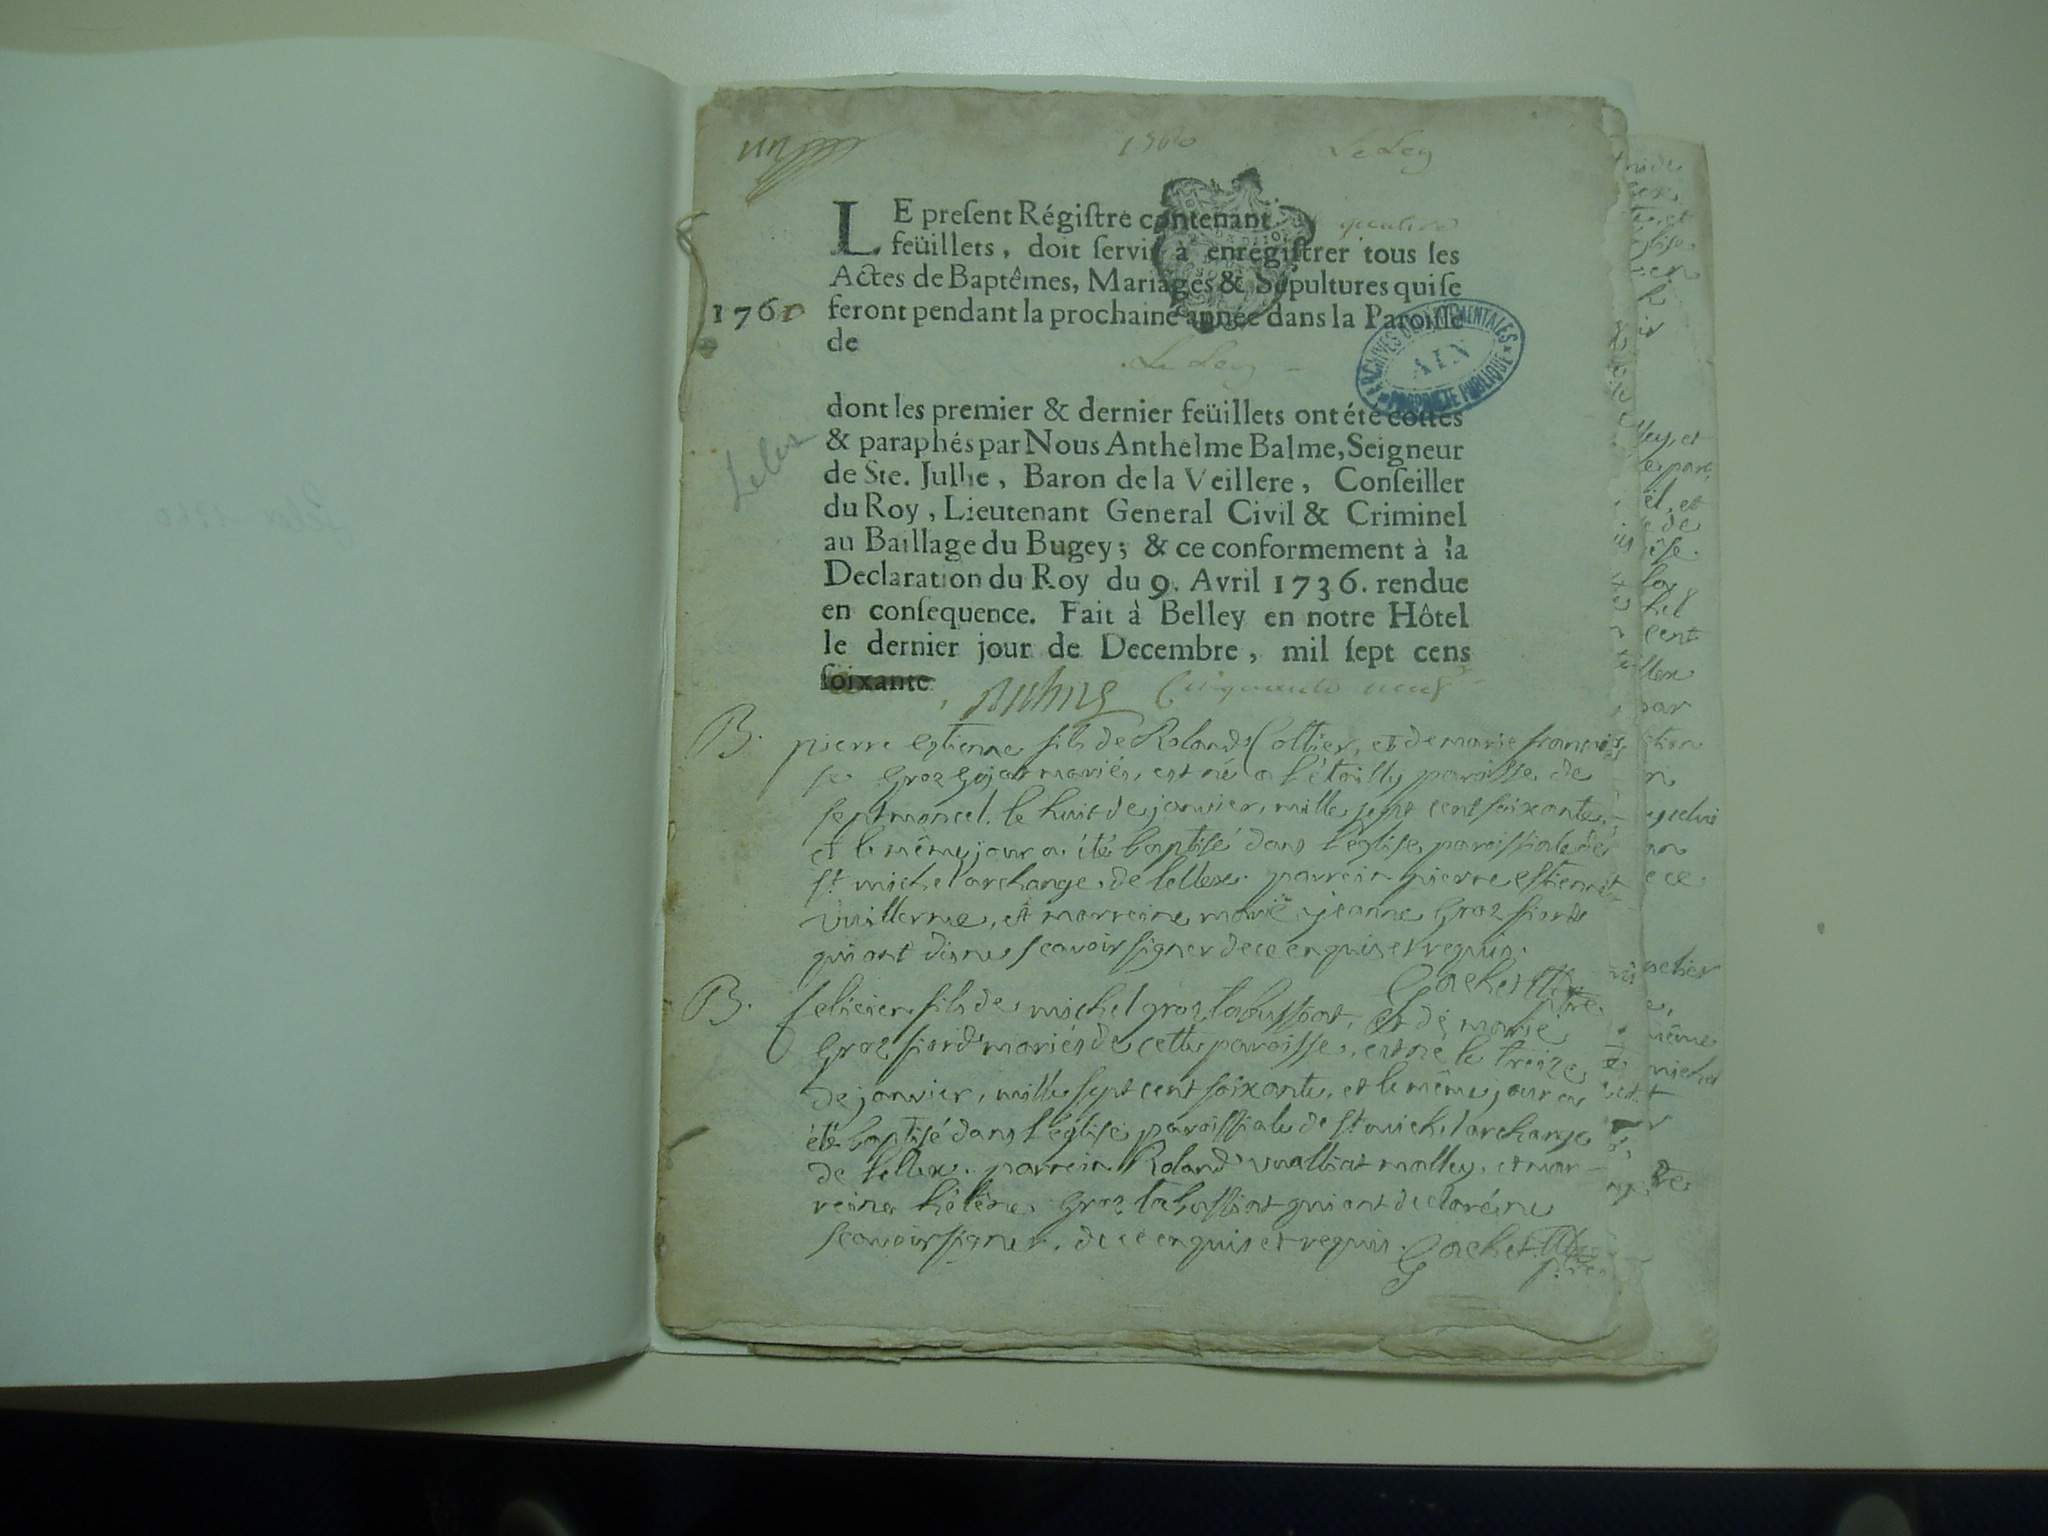 un
1760
LE present Régistre contenant quatre
feüillets, doit servir à enregistrer tous les
Actes de Baptêmes, Mariages & Sepultures qui se
1760 feront pendant la prochaine année dans la Paroisse
de
ARCHIVES DEPARTEMENTALES
AIN
PROPRIETE PUBLIQUE
dont les premier & dernier feüillets ont été cottés
& paraphés par Nous Anthelme Balme, Seigneur
de Ste. Julhe, Baron de la Veillere, Conseiller
du Roy, Lieutenant General Civil & Criminel
au Baillage du Bugey; & ce conformement à la
Declaration du Roy du 9. Avril 1736. rendue
en consequence. Fait à Belley en notre Hôtel
le dernier jour de Decembre, mil sept cens
soixante cinquante neuf
B. pierre estienne fils de Roland Cottier, et de marie françoi
se Groz Gojat mariés, est né a paroisse de
septmoncel. le huit de janvier, mille sept cent soixante,
et le même jour a été baptisé dans l'église paroissiale de
St. michel archange de lellex. parrein pierre estienne
vuillerme, et marreine marie jeanne Groz fiord
qui ont dis ne scavoir signer de ce enquis et requis.
Gachet ptre.
B. felicien fils de michel groz labussiat, et de marie
Groz fiord mariés de cette paroisse, est né le treize
de janvier, mille sept cent soixante, et le même jour a
été baptisé dans l'église paroissiale de St michel archange
de lellex. parrein Roland vualliat malley, et mar-
reine hélène Groz labussiat qui ont declaré ne
scavoir signer, de ce enquis et requis. Gachet
ptre